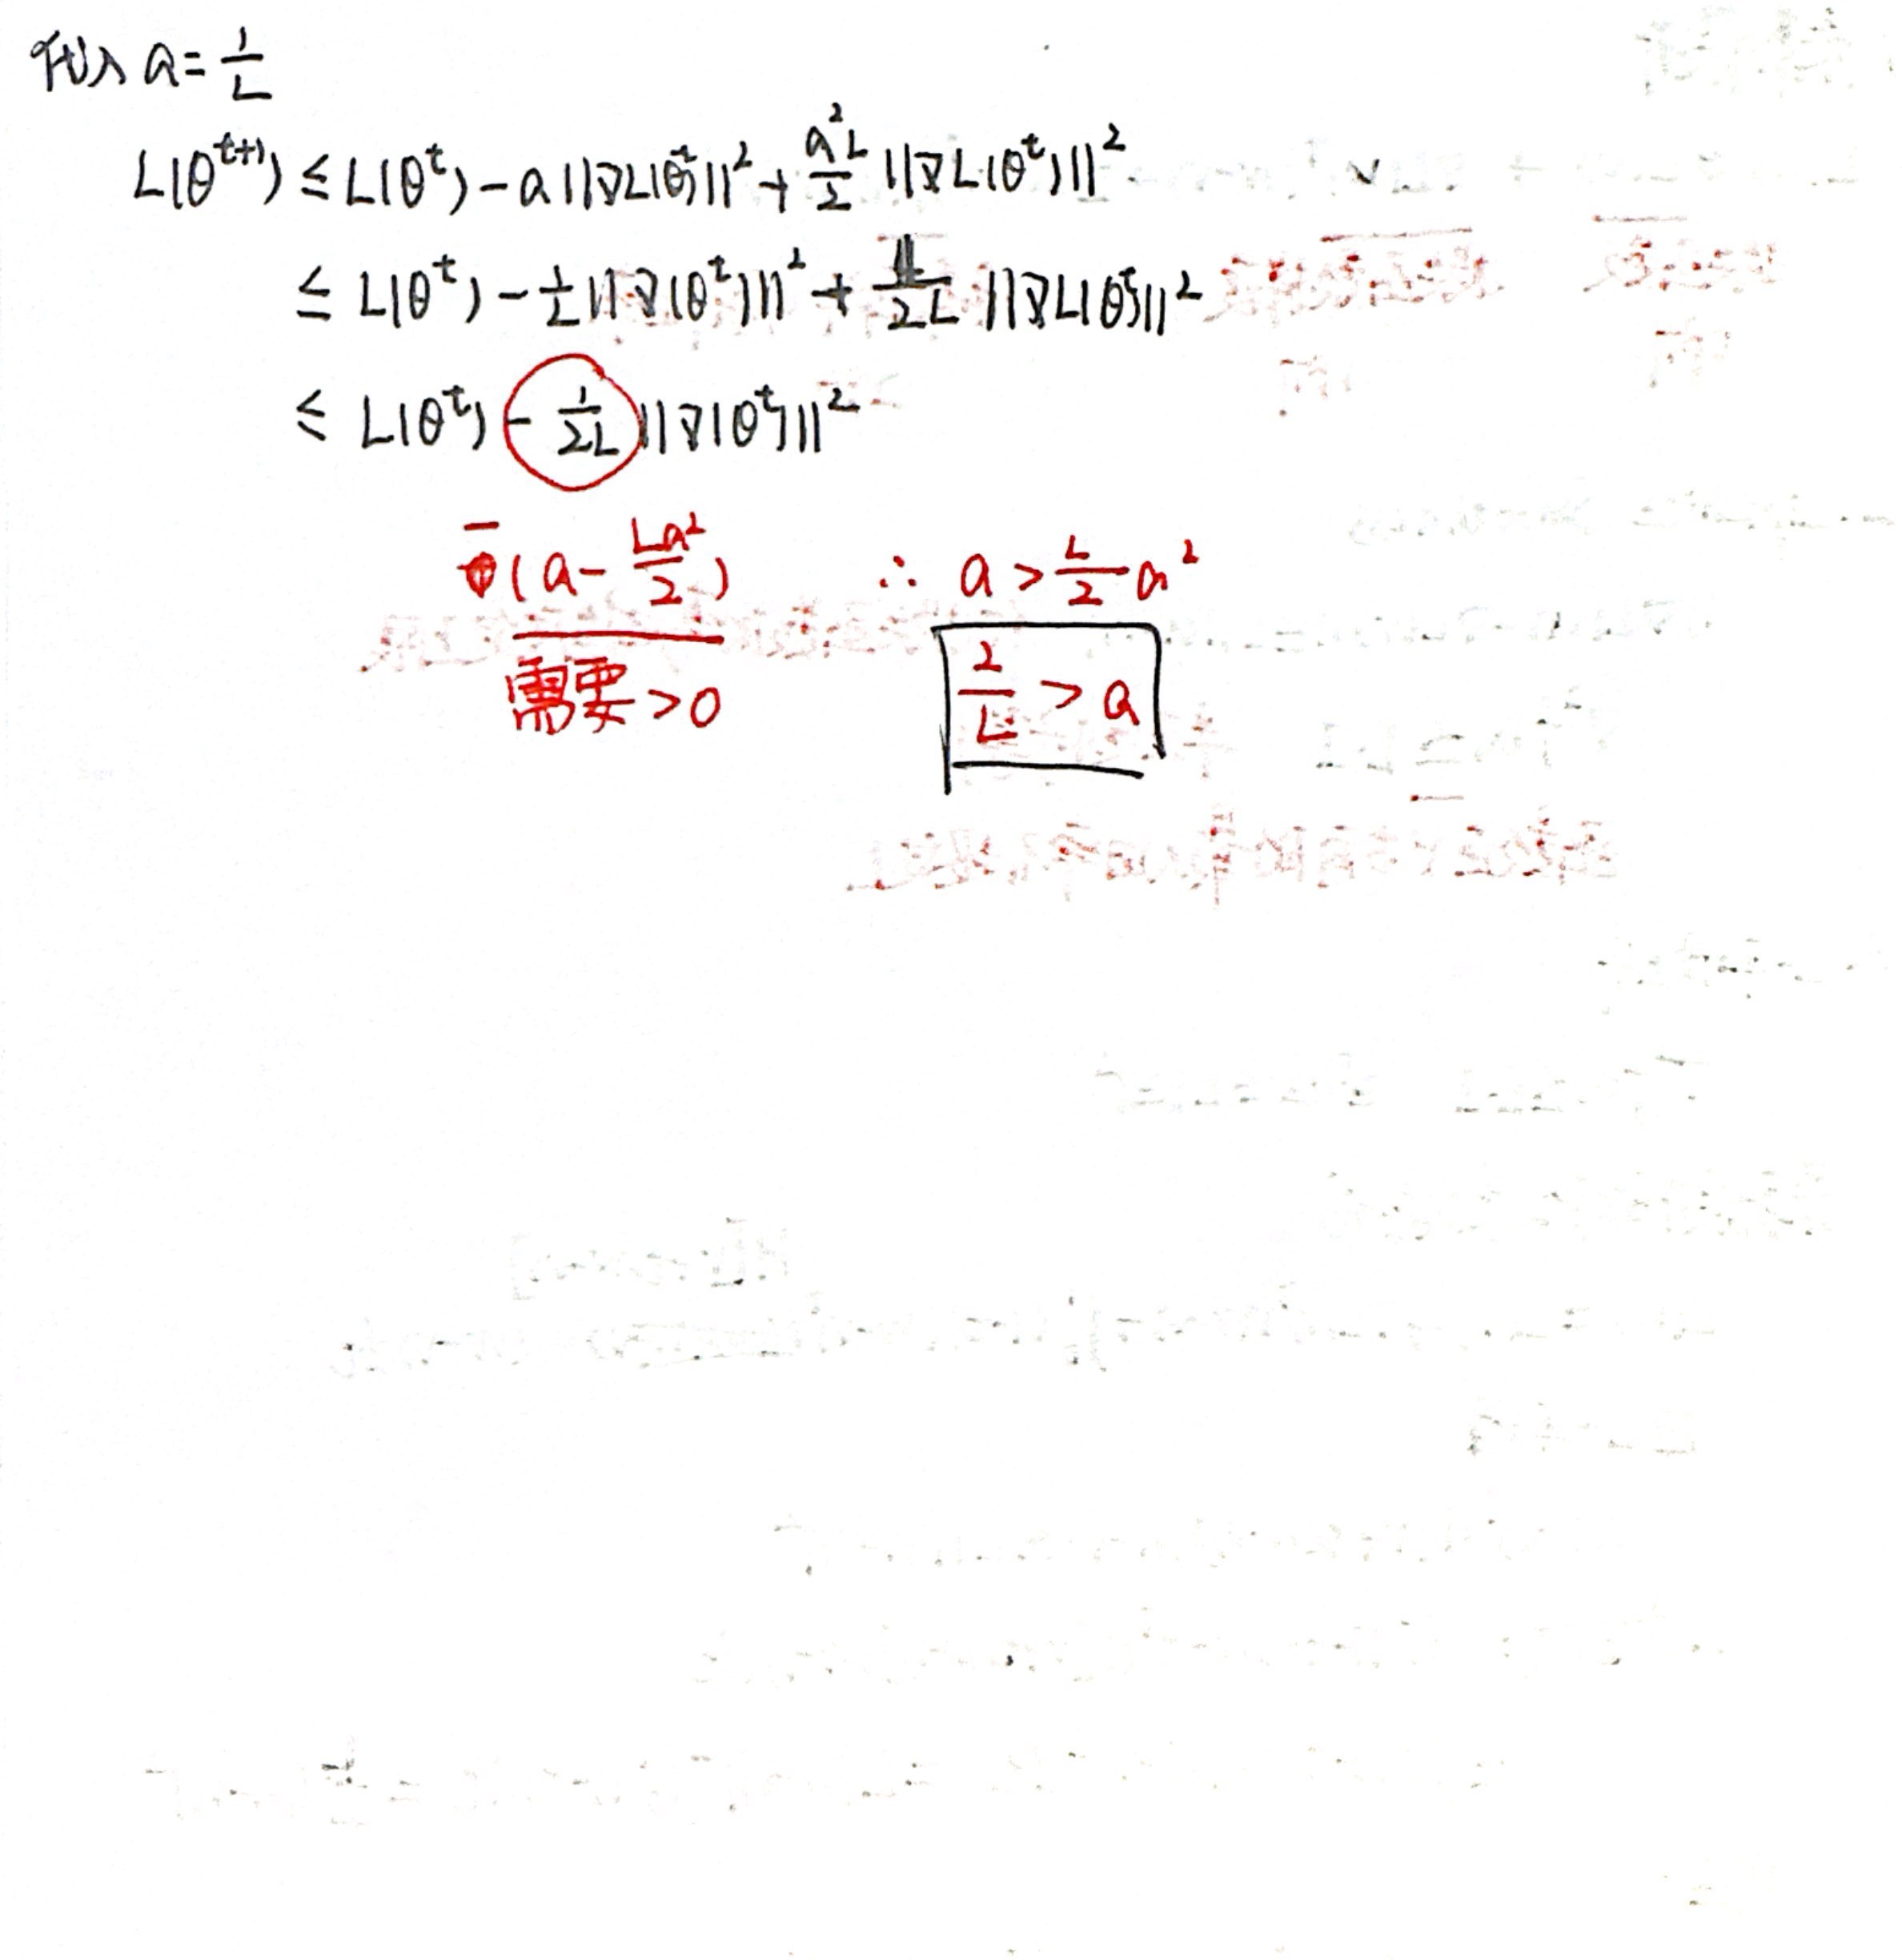 代入 a = 1/L
L(θ^{t+1}) ≤ L(θ^t) - a||∇L(θ^t)||² + a²L/2 ||∇L(θ^t)||²
≤ L(θ^t) - 1/L ||∇(θ^t)||² + 1/2L ||∇L(θ^t)||²
≤ L(θ^t) - 1/2L ||∇(θ^t)||²
-(a - La²/2) ∴ a > L/2 a²
需要 >0 2/L > a